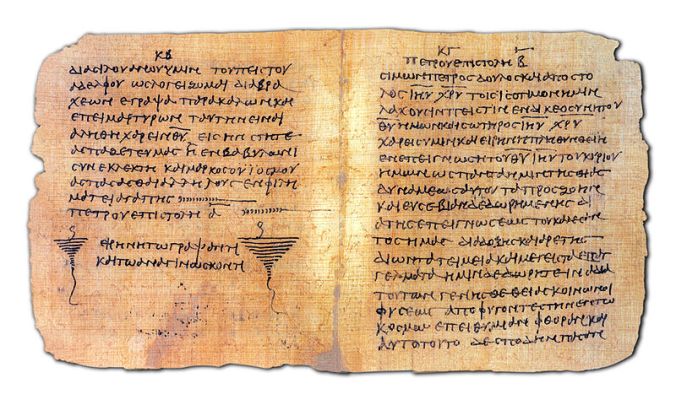 ΚΒ
ΔΙΑ ΣΙΛΟΥΑΝΟΥ ΥΜΙΝ ΤΟΥ ΠΙΣΤΟΥ
ΑΔΕΛΦΟΥ ΩΣ ΛΟΓΕΙΖΟΜΑΙ ΔΙΑ ΒΡΑ
ΧΕΩΝ ΕΓΡΑΨΑ ΠΑΡΑΚΑΛΩΝ ΚΑΙ
ΕΠΕΙΜΑΡΤΥΡΩΝ ΤΑΥΤΗΝ ΕΙΝΑΙ
ΑΛΗΘΗ ΧΑΡΕΙΝ Θ̅Υ̅ ΕΙΣ ΗΝ ΣΤΗΤΕ
ΑΣΠΑΖΕΤΕ ΥΜΑΣ Η ΕΝ ΒΑΒΥΛΩΝΙ
ΣΥΝΕΚΛΕΚΤΗ ΚΑΙ ΜΑΡΚΟΣ Ο ΥΙΟΣ ΜΟΥ
ΑΣΠΑΣΑΣΘΑΙ ΑΛΛΗΛΟΥΣ ΕΝ ΦΙΛΗ
ΜΑΤΕΙ ΑΓΑΠΗΣ
ΠΕΤΡΟΥ ΕΠΙΣΤΟΛΗ Α̅
ΕΙΡΗΝΗ ΤΩ ΓΡΑΨΑΝΤΙ
ΚΑΙ ΤΩ ΑΝΑΓΙΝΩΣΚΟΝΤΙ
ΚΓ
ΠΕΤΡΟΥ ΕΠΙΣΤΟΛΗ Β̅
ΣΙΜΩΝ ΠΕΤΡΟΣ ΔΟΥΛΟΣ ΚΑΙ ΑΠΟΣΤΟ
ΛΟΣ Ι̅Η̅Υ̅ Χ̅Ρ̅Υ̅ ΤΟΙΣ ΙΣΟΤΙΜΟΝ ΗΜΙΝ
ΛΑΧΟΥΣΙΝ ΠΙΣΤΙΝ ΕΝ ΔΙΚΕΟΣΥΝΗ ΤΟΥ
Θ̅Υ̅ ΗΜΩΝ ΚΑΙ ΣΩΤΗΡΟΣ Ι̅Η̅Υ̅ Χ̅Ρ̅Υ̅
ΧΑΡΕΙΣ ΥΜΙΝ ΚΑΙ ΕΙΡΗΝΗ ΠΛΗΘΥΝΘΕΙΗ
ΕΝ ΕΠΕΙΓΝΩΣΗ ΤΟΥ Θ̅Υ̅ Ι̅Η̅Υ̅ ΤΟΥ ΚΥΡΙΟΥ
ΗΜΩΝ ΩΣ ΠΑΝΤΑ ΗΜΙΝ ΤΗΣ ΘΕΙΑΣ
ΔΥΝΑΜΕΩΣ ΑΥΤΟΥ ΤΑ ΠΡΟΣ ΖΩΗΝ
ΚΑΙ ΕΥΣΕΒΙΑΝ ΔΕΔΩΡΗΜΕΝΗΣ ΔΙ
Α ΤΗΣ ΕΠΕΙΓΝΩΣΕΩΣ ΤΟΥ ΚΑΛΕΣΑΝ
ΤΟΣ ΗΜΑΣ ΔΙΑ ΔΟΞΗΣ ΚΑΙ ΑΡΕΤΗΣ
ΔΙ ΩΝ ΤΑ ΤΕΙΜΕΙΑ ΚΑΙ ΜΕΓΙΣΤΑ ΕΠΑΓ
ΓΕΛΜΑΤΑ ΗΜΙΝ ΔΕΔΩΡΗΤΕ ΙΝΑ ΔΙΑ
ΤΟΥΤΩΝ ΓΕΝΗΣΘΕ ΘΕΙΑΣ ΚΟΙΝΩΝΟΙ
ΦΥΣΕΩΣ ΑΠΟΦΥΓΟΝΤΕΣ ΤΗΝ ΕΝ ΤΩ
ΚΟΣΜΩ ΕΠΕΙΘΥΜΙΑΝ ΦΘΟΡΑΝ ΚΑΙ
ΑΥΤΟ ΤΟΥΤΟ ΔΕ ΣΠΟΥΔΗΝ ΠΑΣΑΝ